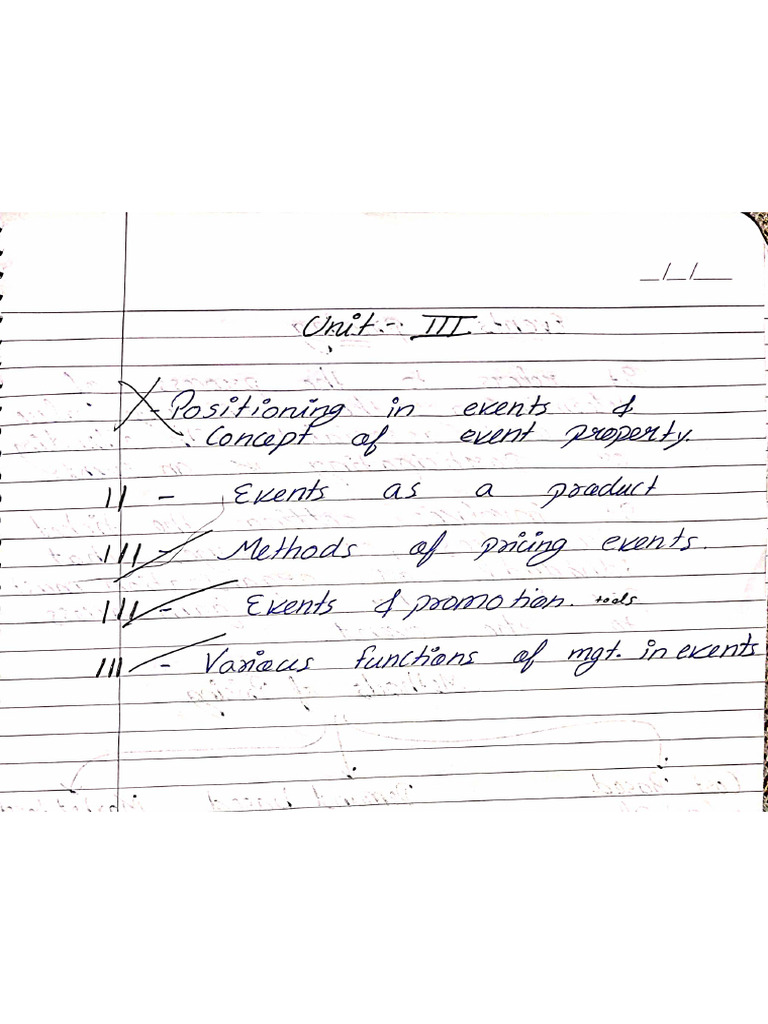 _/_/__
Unit:- III
- Positioning in events &
Concept of event property.
II - Events as a product
III - Methods of pricing events.
III - Events & promotion. tools
III - Various functions of mgt. in events